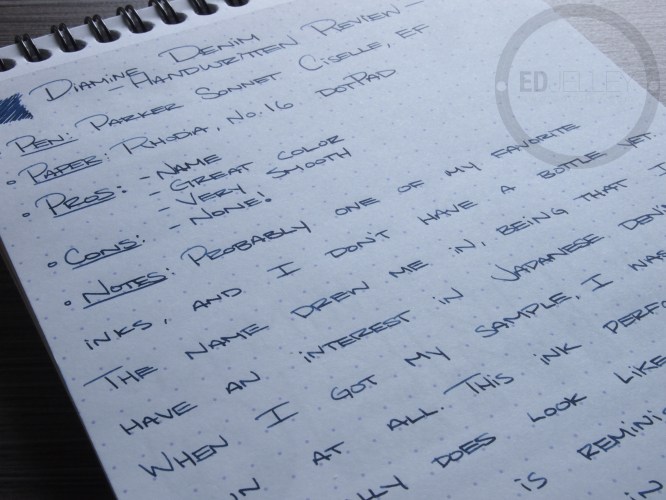 Diamine Denim
- Handwritten Review -
Pen: Parker Sonnet Ciselle, EF
Paper: Rhodia, No. 16 dotPad
Pros: - Name
- Great color
- Very smooth
Cons: - None!
Notes: Probably one of my favorite
inks, and I don't have a bottle yet.
The name drew me in, being that I
have an interest in Japanese
When I got my sample, I was
at all. This ink
does look like
is
in
ED JELLEY